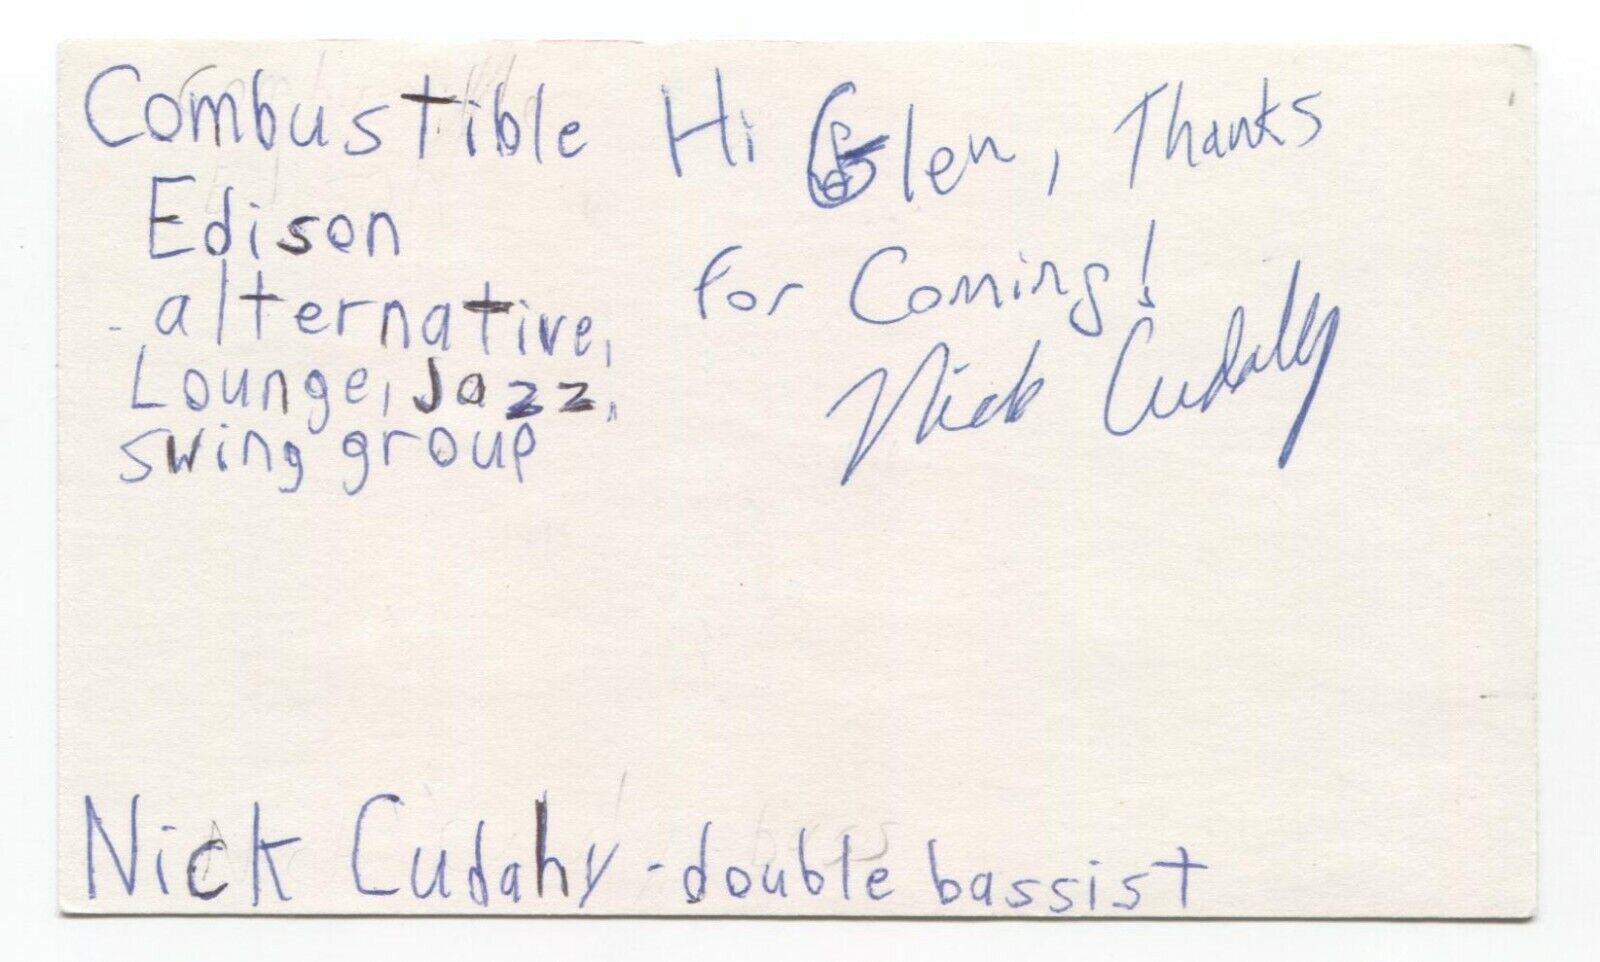 Combustible
Edison
- alternative,
Lounge, Jazz,
swing group
Hi Glen, Thanks
for Coming!
Nick Cudahy
Nick Cudahy - double bassist